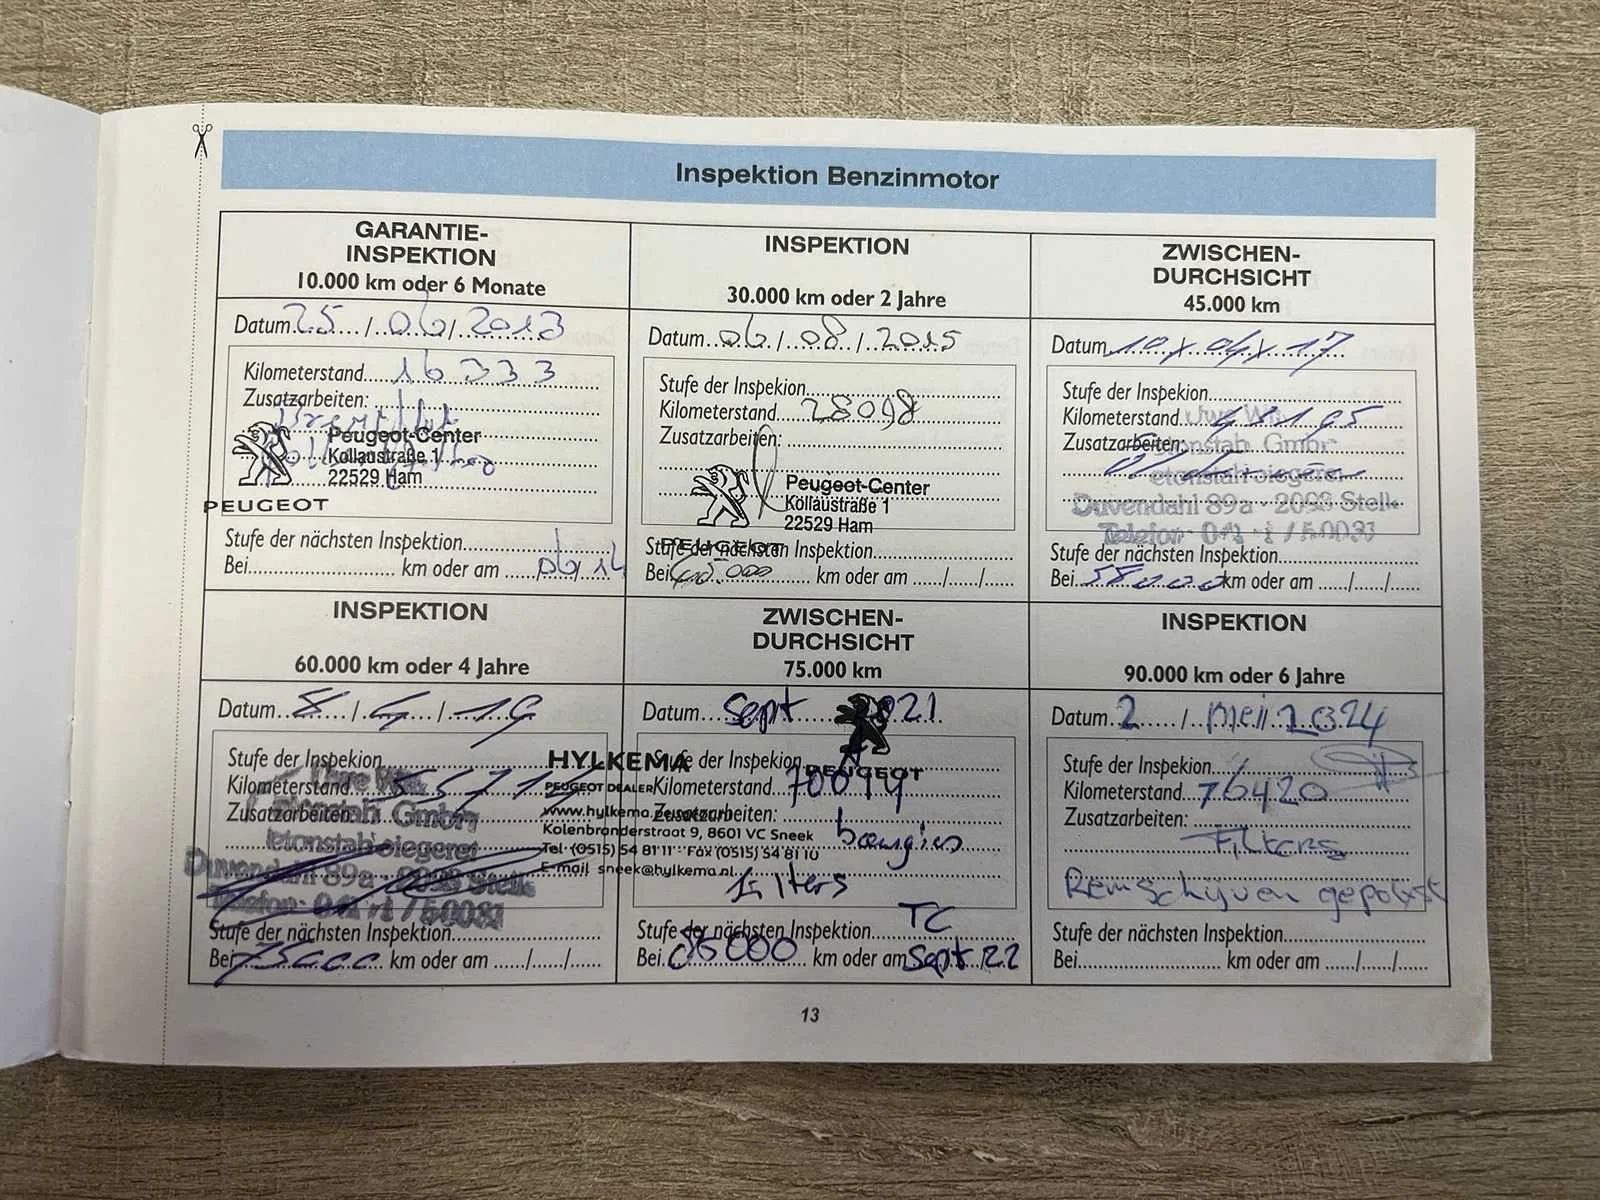 Inspektion Benzinmotor
GARANTIE-
INSPEKTION
10.000 km oder 6 Monate
Datum 25 / 06 / 2013
Kilometerstand 16 333
Zusatzarbeiten:
Peugeot-Center
Kollaustraße 1
22529 Ham
PEUGEOT
Stufe der nächsten Inspektion
Bei km oder am 06/14
INSPEKTION
30.000 km oder 2 Jahre
Datum 06 / 08 / 2015
Stufe der Inspekion
Kilometerstand 28098
Zusatzarbeiten:
Peugeot-Center
Kollaustraße 1
22529 Ham
PEUGEOT
Stufe der nächsten Inspektion
Bei 45.000 km oder am / /
ZWISCHEN-
DURCHSICHT
45.000 km
Datum 10 / 04 / 17
Stufe der Inspekion
Kilometerstand
Zusatzarbeiten:
Duvendahl 89a
Stufe der nächsten Inspektion
Bei 58000 km oder am / /
INSPEKTION
60.000 km oder 4 Jahre
Datum 8 / 4 / 19
Stufe der Inspekion
Kilometerstand
Zusatzarbeiten:
Duvendahl 89a
Stufe der nächsten Inspektion
Bei 73000 km oder am / /
ZWISCHEN-
DURCHSICHT
75.000 km
Datum Sept 2021
PEUGEOT
Stufe der Inspekion
HYLKEMA
PEUGEOT DEALER
www.hylkema.peugeot.nl
Kolenbranderstraat 9, 8601 VC Sneek
Tel. (0515) 54 81 11 - Fax (0515) 54 81 10
E-mail sneek@hylkema.nl
Kilometerstand 70079
Zusatzarbeiten: bougies
Filters
Stufe der nächsten Inspektion TC
Bei 86000 km oder am Sept 22
INSPEKTION
90.000 km oder 6 Jahre
Datum 2 / mei 2024
Stufe der Inspekion
Kilometerstand 76420
Zusatzarbeiten:
Filters
Remschijven gepoetst
Stufe der nächsten Inspektion
Bei km oder am / /
13